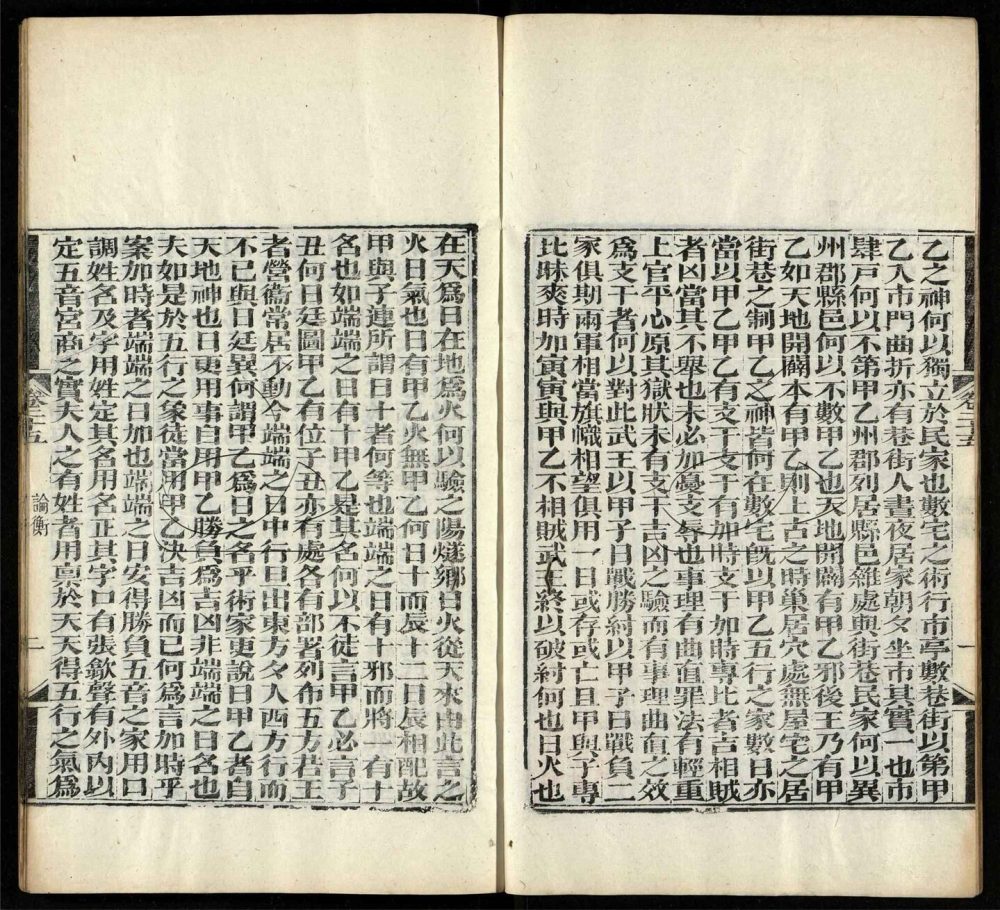 乙之神何以獨立於民家也數宅之術行市亭數巷街以第甲
乙入市門曲折亦有巷街人晝夜居家朝夕坐市其實一也市
肆戸何以不第甲乙州郡列居縣邑雜處與街巷民家何以異
州郡縣邑何以不數甲乙也天地開闢有甲乙邪後王乃有甲
乙如天地開闢本有甲乙則上古之時巢居穴處無屋宅之居
街巷之制甲乙之神皆何在數宅旣以甲乙五行之家數日亦
當以甲乙甲乙有支干支干有加時支干加時專比者吉相賊
者凶當其不舉也未必加憂支辱也事理有曲直罪法有輕重
上官平心原其獄狀未有支干吉凶之驗而有事理曲直之效
爲支干者何以對此武王以甲子日戰勝紂以甲子日戰負二
家俱期兩軍相當旗幟相望俱用一日或存或亡且甲與子專
比昧爽時加寅寅與甲乙不相賊武王終以破紂何也日火也
卷二十五
一
在天爲日在地爲火何以驗之陽燧鄉日火從天來由此言之
火日氣也日有甲乙火無甲乙何日十而辰十二日辰相配故
甲與子連所謂日十者何等也端端之日有十邪而將一有十
名也如端端之日有十甲乙是其名何以不徒言甲乙必言子
丑何日廷圖甲乙有位子丑亦有處各有部署列布五方若王
者營衞常居不動今端端之日中行旦出東方夕入西方行而
不已與日廷異何謂甲乙爲日之名乎術家更說日甲乙者自
天地神也日更用事自用甲乙勝負爲吉凶非端端之日名也
夫如是於五行之象徒當用甲乙決吉凶而已何爲言加時乎
案加時者端端之日加也端端之日安得勝負五音之家用口
調姓名及字用姓定其名用名正其字口有張歙聲有外内以
定五音宮商之實夫人之有姓者用禀於天天得五行之氣爲
卷二十五
論衡
二